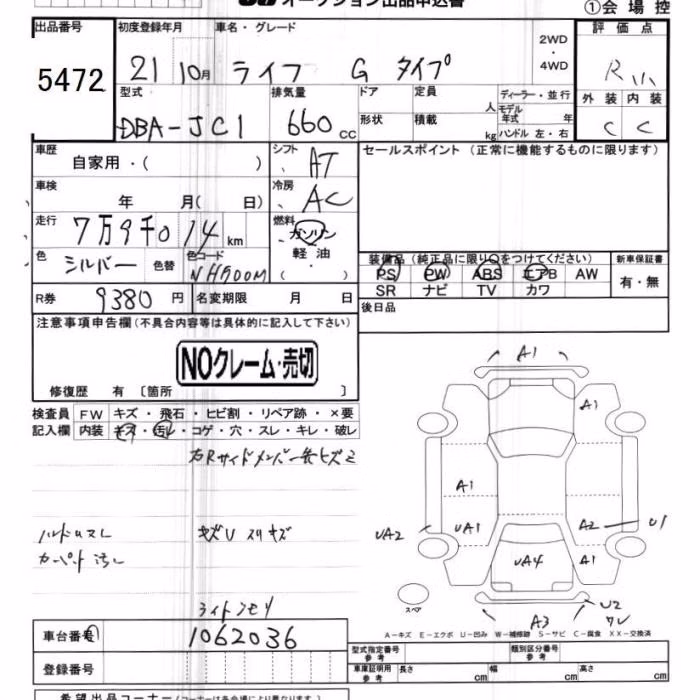 オークション出品申込書
①会場控
出品番号
5472
初度登録年月 車名・グレード
21 10月 ライフ G タイプ
2WD
・
4WD
評価点
R
外装 内装
C C
型式 排気量 ドア 定員 ディーラー・並行
DBA-JC1 660 cc
人 モデル年式 年
形状 積載 kg ハンドル 左・右
車歴
自家用・( )
シフト AT
セールスポイント (正常に機能するものに限ります)
車検 年 月( 日)
冷房 AC
走行 7万9千014 km
燃料 ガソリン
・
軽油
・
( )
色 シルバー 色替 色コード NH700M
装備品 (純正品に限り○をつけてください) 新車保証書
PS PW ABS エアB AW
SR ナビ TV カワ
有・無
R券 9380 円 名変期限 月 日
後日品
注意事項申告欄 (不具合内容等は具体的に記入して下さい)
NOクレーム・売切
修復歴 有 〔箇所 〕
検査員 FW キズ・飛石・ヒビ割・リペア跡・×要
記入欄 内装 キズ・汚れ・コゲ・穴・スレ・キレ・破レ
カーペット汚レ
ライトクモリ
A1
A1
A1
UA1 A2 U1
UA2
UA4 A1
スペア
A3 U2
A-キズ E-エクボ U-凹み W-補修跡 S-サビ C-腐食 XX-交換済
車台番号 1062036
登録番号
型式指定番号 参考 類別区分番号 参考
車庫証明用 参考 長さ cm 幅 cm 高さ cm
希望出品コーナー (コーナーは各会場により異なります。)